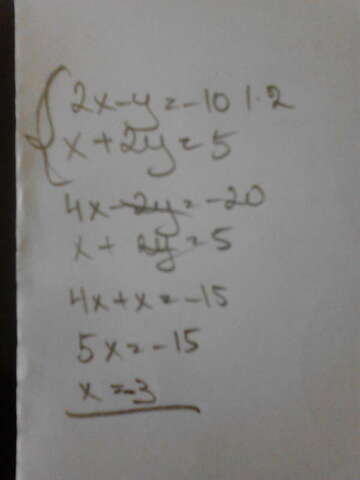 2x-y=-10 |·2
x+2y=5
4x-2y=-20
x+2y=5
4x+x=-15
5x=-15
x=-3